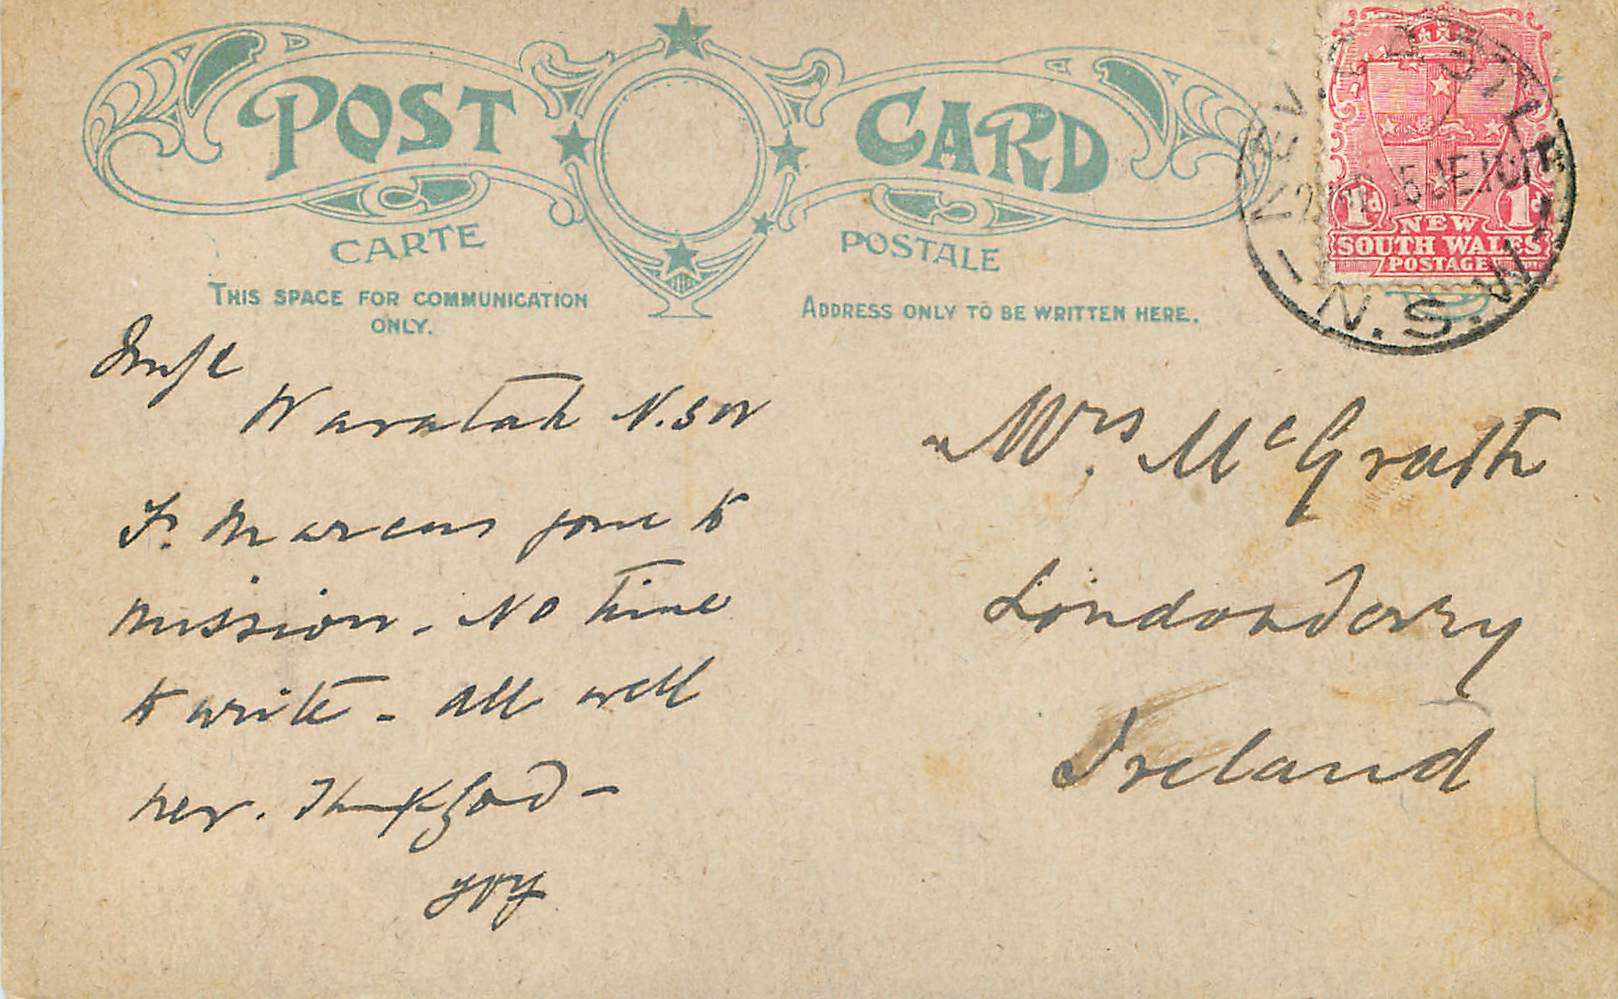 POST CARD
CARTE POSTALE
THIS SPACE FOR COMMUNICATION
ONLY.
ADDRESS ONLY TO BE WRITTEN HERE.
NEWCASTLE
15 DE 10
N.S.W.
1d 1d
NEW
SOUTH WALES
POSTAGE
Waratah N.S.W
Fr. Marcus gone to
mission. No time
to write - all well
her. Thank God -
Mrs. McGrath
Londonderry
Ireland